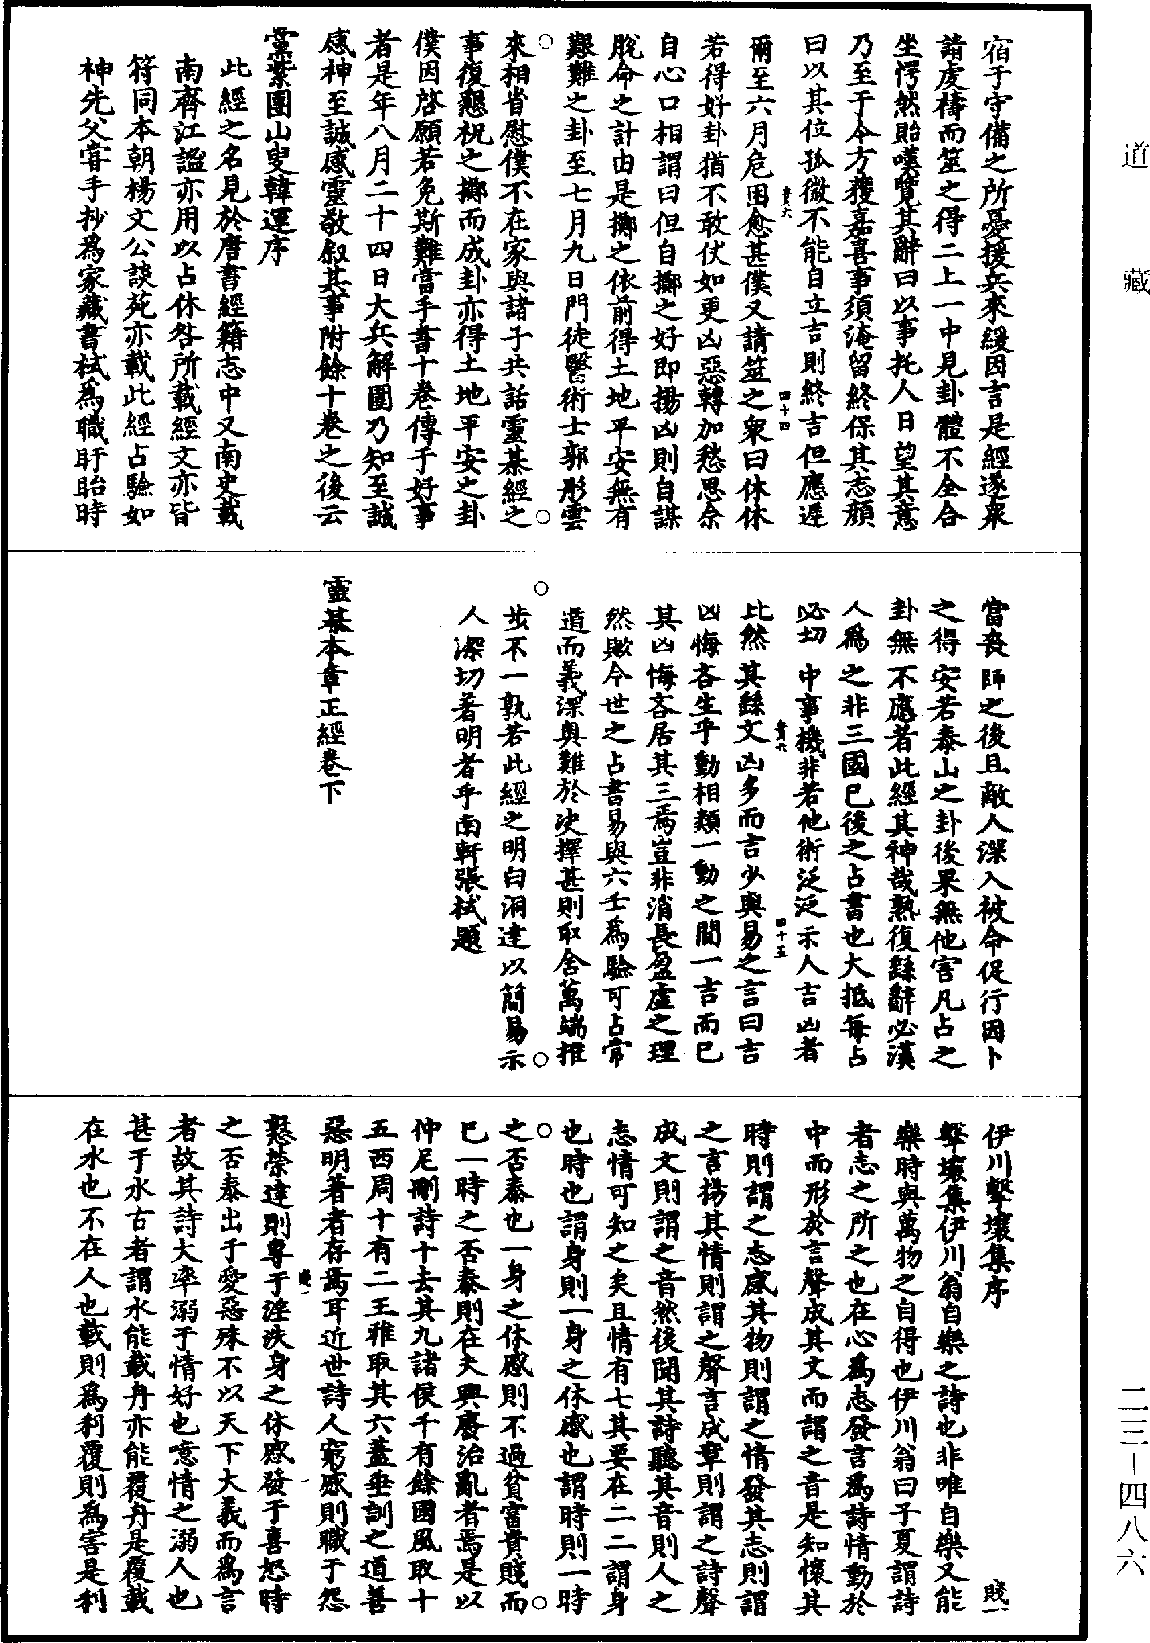 道藏
宿于守備之所憂援兵來緩因言是經遂衆
請虔禱而筮之得二上一中見卦體不全合
坐愕然貽嘆覽其辭曰以事托人日望其意
乃至于今方獲嘉喜事須淹留終保其志頗
曰以其位孤微不能自立吉則終吉但應遲
貲六
四十四
爾至六月危困愈甚僕又請筮之衆曰休休
若得好卦猶不敢伏如更凶惡轉加愁思余
自心口相謂曰但自擲之好即揚凶則自謀
脫命之計由是擲之依前得土地平安無有
艱難之卦至七月九日門徒醫術士郭彤雲
來相省慰僕不在家與諸子共話靈棊經之
事復懇祝之擲而成卦亦得土地平安之卦
僕因啓願若免斯難當手書十卷傳于好事
者是年八月二十四日大兵解圍乃知至誠
感神至誠感靈敬叙其事附餘十卷之後云
黨業園山叟韓運序
此經之名見於唐書經籍志中又南史載
南齊江謐亦用以占休咎所載經文亦皆
符同本朝楊文公談苑亦載此經占驗如
神先父嘗手抄爲家藏書栻爲職盱眙時
當喪師之後且敵人深入被命促行因卜
之得安若泰山之卦後果無他害凡占之
卦無不應者此經其神哉熟復繇辭必漢
人爲之非三國已後之占書也大抵每占
必切中事機非若他術泛泛示人吉凶者
貲六
四十五
比然其繇文凶多而吉少與易之言曰吉
凶悔吝生乎動相類一動之間一吉而已
其凶悔吝居其三焉豈非消長盈虛之理
然歟今世之占書易與六壬爲驗可占常
道而義深奥難於決擇甚則取舍萬端推
步不一孰若此經之明白洞達以簡易示
人深切著明者乎南軒張栻題
靈棊本章正經卷下
伊川擊壤集序
賤一
擊壤集伊川翁自樂之詩也非唯自樂又能
樂時與萬物之自得也伊川翁曰子夏謂詩
者志之所之也在心爲志發言爲詩情動於
中而形於言聲成其文而謂之音是知懷其
時則謂之志感其物則謂之情發其志則謂
之言揚其情則謂之聲言成章則謂之詩聲
成文則謂之音然後聞其詩聽其音則人之
志情可知之矣且情有七其要在二二謂身
也時也謂身則一身之休慼也謂時則一時
之否泰也一身之休慼則不過貧富貴賤而
已一時之否泰則在夫興廢治亂者焉是以
仲尼刪詩十去其九諸侯千有餘國風取十
五西周十有二王雅取其六蓋垂訓之道善
惡明著者存焉耳近世詩人窮慼則職于怨
懟榮達則專于淫泆身之休慼發于喜怒時
之否泰出于愛惡殊不以天下大義而爲言
者故其詩大率溺于情好也噫情之溺人也
甚于水古者謂水能載舟亦能覆舟是覆載
在水也不在人也載則爲利覆則爲害是利
二三－四八六